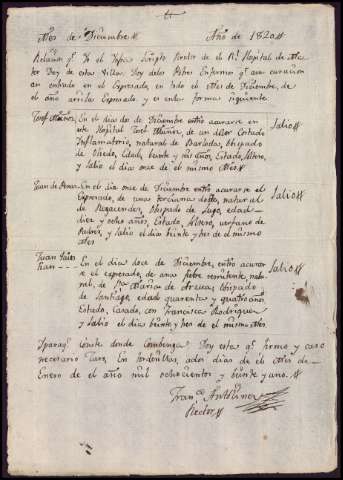 Mes de Diciembre Año de 1820
Relacion qe Yo el Ynfra scripto Rector de el Rl Hospital de Mater
Dey de esta Villa Doy delos Pobres Enfermos qe asu curacion
an entrado en el Espresado, en todo el Mes de Diciembre, de
el año arriba Espresado y es enla forma siguiente.
Josef Muñoz, En el dia dos de Diciembre entró acurarse en Salio
este Hospital Josef Muñoz, de un dolor Costado
Inflamatorio, natural de Obispado
de Obiedo, Edad, beinte y seis años, Estado, soltero,
y salio el dia once de el mismo Mes
Juan de En el dia once de Diciembre entró acurarse el Salio
Espresado, de unas tercianas natural
de Obispado de Lugo, edad
diez y ocho años, Estado, soltero, uerfano de
Padres, y salio el dia beinte y tres de el mismo
Mes
Juan
En el dia doce de Diciembre, entró acurar Salio
se el espresado, de unas fiebre remitente, natu
ral, de Sta Maria de Obispado
de Santiago edad quarenta y quatro años,
Estado, Casado, con Francisca Rodriguez
y salio el dia beinte y tres de el mismo Mes.
Y paraqe Conste donde Combenga Doy esta qe firmo y caso
necesario Juro En tordesillas, ados dias de el Mes de
Enero de el año mil ochocientos y beinte y uno.
Franco Antolinez
Rector